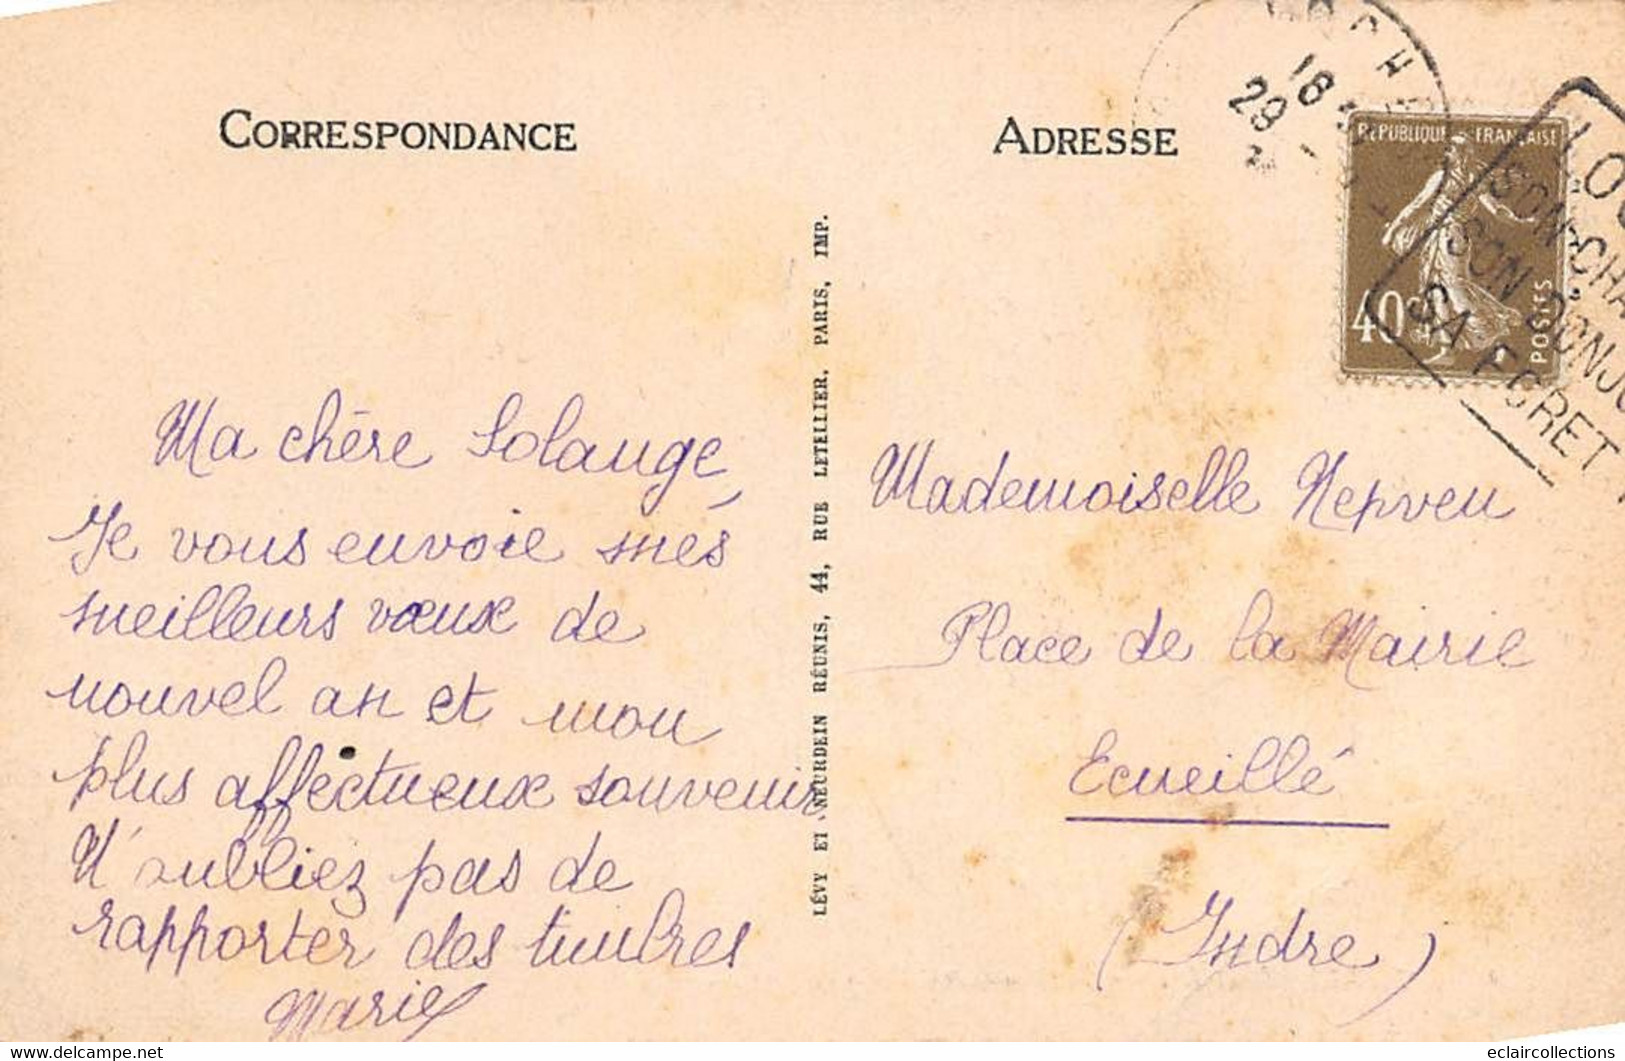 CORRESPONDANCE
Ma chère Solange,
Je vous envoie mes
meilleurs vœux de
nouvel an et mon
plus affectueux souvenir
N'oubliez pas de
rapporter des timbres
Marie
LÉVY ET NEURDEIN RÉUNIS, 44, RUE LETELLIER, PARIS, IMP.
ADRESSE
18
29
REPUBLIQUE FRANÇAISE
40c
POSTES
SON CHA
SON DONJO
SA FORET
Mademoiselle Nepveu
Place de la Mairie
Ecueillé
(Indre)
delcampe.net
eclaircollections